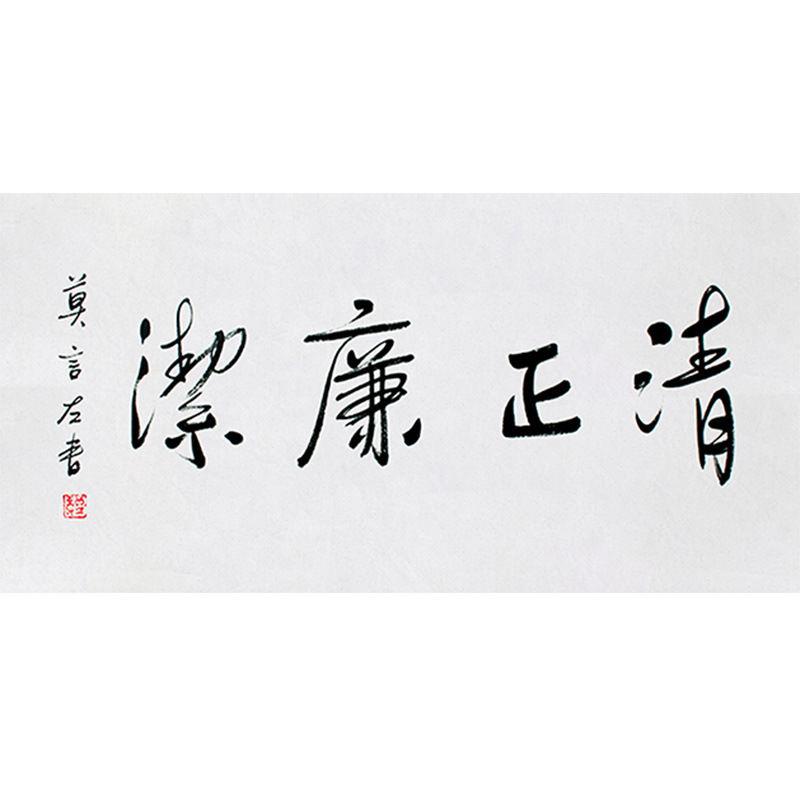 清正廉潔
莫言左書